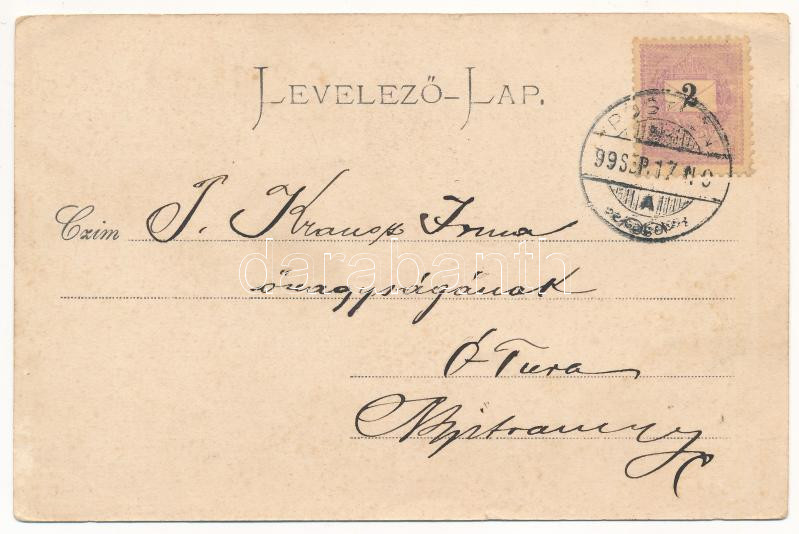 LEVELEZŐ-LAP.
2
99 SEP. 17. N 9
A
Czim T. Krausz Irma
darabanth
őnagyságának
Ó Tura
Nyitramegy